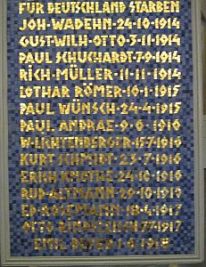 FÜR DEUTSCHLAND STARBEN
JOH·WADEHN·24·10·1914
GUST·WILH·OTTO·3·11·1914
PAUL SCHUCHARDT·7·9·1914
RICH·MÜLLER·11·11·1914
LOTHAR RÖMER·10·1·1915
PAUL WÜNSCH·24·4·1915
PAUL ANDRAE·9·6·1916
W·LICHTENBERGER·15·7·1916
KURT SCHMIDT·23·7·1916
ERICH 24·10·1916
RUD·ALTMANN·29·10·1917
4·1917
OTTO 1917
EMIL 4·1918